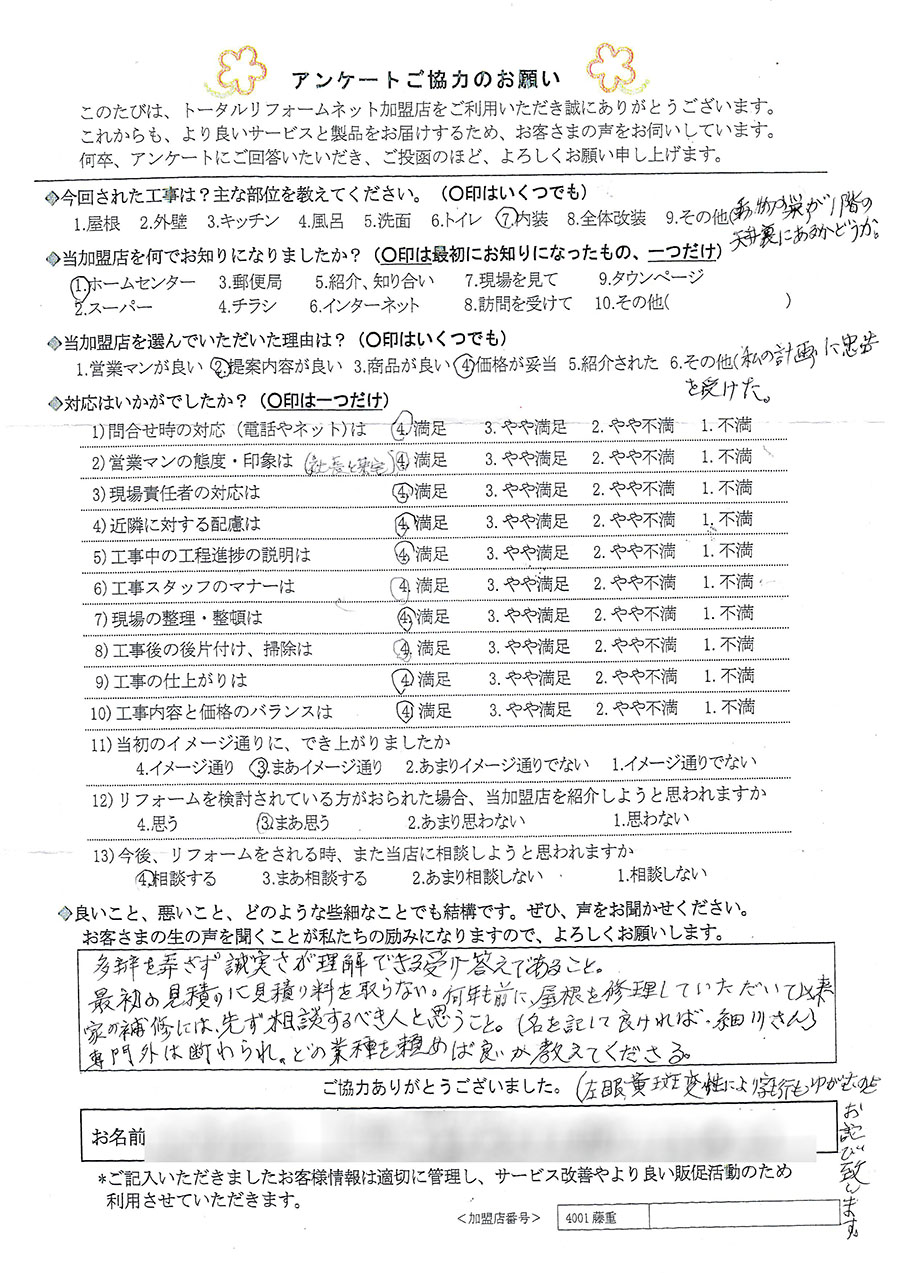 アンケートご協力のお願い
このたびは、トータルリフォームネット加盟店をご利用いただき誠にありがとうございます。
これからも、より良いサービスと製品をお届けするため、お客さまの声をお伺いしています。
何卒、アンケートにご回答いたいだき、ご投函のほど、よろしくお願い申し上げます。
◆今回された工事は？主な部位を教えてください。（〇印はいくつでも）
1.屋根 2.外壁 3.キッチン 4.風呂 5.洗面 6.トイレ ⑦内装 8.全体改装 9.その他(動物の巣が1階の
天井裏にあるかどうか。
◆当加盟店を何でお知りになりましたか？（〇印は最初にお知りになったもの、一つだけ）
①ホームセンター 3.郵便局 5.紹介、知り合い 7.現場を見て 9.タウンページ
2.スーパー 4.チラシ 6.インターネット 8.訪問を受けて 10.その他( )
◆当加盟店を選んでいただいた理由は？（〇印はいくつでも）
1.営業マンが良い ②提案内容が良い 3.商品が良い ④価格が妥当 5.紹介された 6.その他(私の計画)に忠告
を受けた。
◆対応はいかがでしたか？（〇印は一つだけ）
1)問合せ時の対応（電話やネット)は ④満足 3.やや満足 2.やや不満 1.不満
2)営業マンの態度・印象は ④満足 3.やや満足 2.やや不満 1.不満
3)現場責任者の対応は ④満足 3.やや満足 2.やや不満 1.不満
4)近隣に対する配慮は ④満足 3.やや満足 2.やや不満 1.不満
5)工事中の工程進捗の説明は ④満足 3.やや満足 2.やや不満 1.不満
6)工事スタッフのマナーは ④満足 3.やや満足 2.やや不満 1.不満
7)現場の整理・整頓は ④満足 3.やや満足 2.やや不満 1.不満
8)工事後の後片付け、掃除は ④満足 3.やや満足 2.やや不満 1.不満
9)工事の仕上がりは ④満足 3.やや満足 2.やや不満 1.不満
10)工事内容と価格のバランスは ④満足 3.やや満足 2.やや不満 1.不満
11)当初のイメージ通りに、でき上がりましたか
4.イメージ通り ③まあイメージ通り 2.あまりイメージ通りでない 1.イメージ通りでない
12)リフォームを検討されている方がおられた場合、当加盟店を紹介しようと思われますか
4.思う ③まあ思う 2.あまり思わない 1.思わない
13)今後、リフォームをされる時、また当店に相談しようと思われますか
④相談する 3.まあ相談する 2.あまり相談しない 1.相談しない
◆良いこと、悪いこと、どのような些細なことでも結構です。ぜひ、声をお聞かせください。
お客さまの生の声を聞くことが私たちの励みになりますので、よろしくお願いします。
多辯を弄さず誠実さが理解できる受け答えであること。
最初の見積りに見積り料を取らない。何年も前に、屋根を修理していただいて以来
家の補修には、先ず相談するべき人と思うこと。(名を記して良ければ・細川さん)
専門外は断わられ。どの業種を頼めば良いか教えてくださる。
ご協力ありがとうございました。(左眼黄斑変性により字も行もゆがむのを
お詫び致します。
お名前
*ご記入いただきましたお客様情報は適切に管理し、サービス改善やより良い販促活動のため
利用させていただきます。
＜加盟店番号＞ 4001 藤重